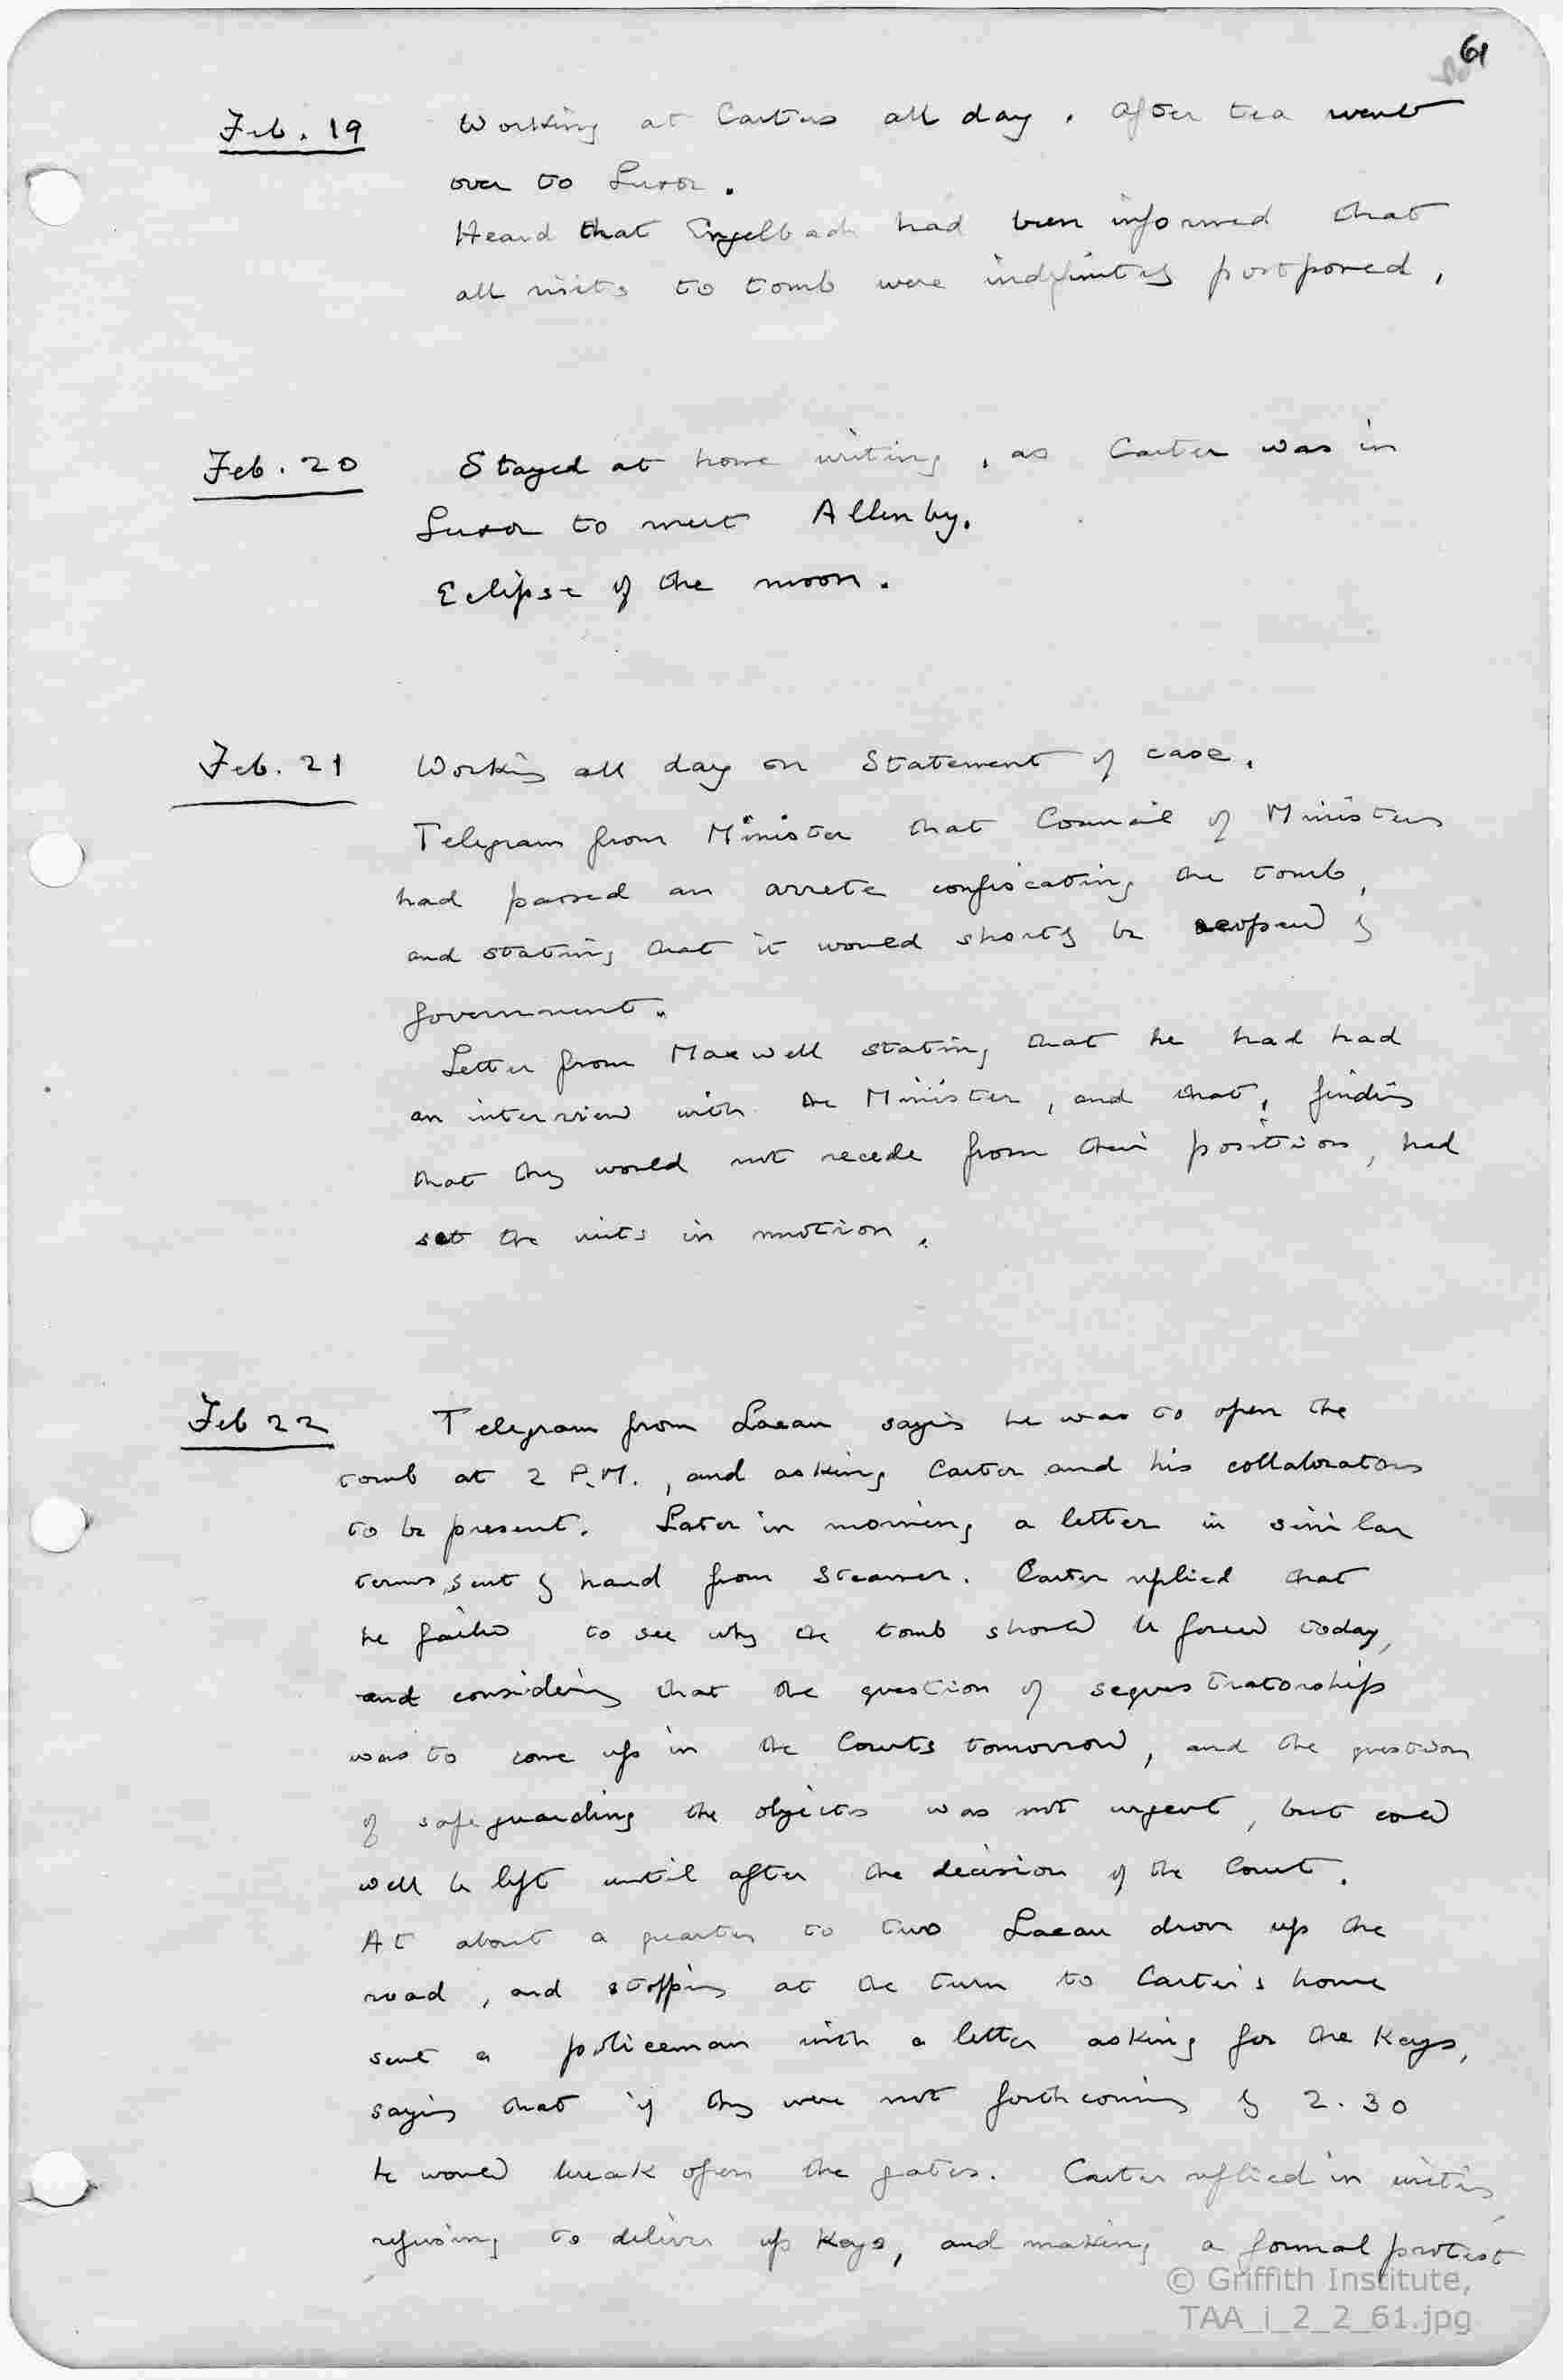 61
Feb. 19 Working at Carters all day. After tea went
over to Luxor.
Heard that Engelbach had been informed that
all visits to tomb were indefinitely postponed.
Feb. 20 Stayed at home writing, as Carter was in
Luxor to meet Allenby.
Eclipse of the moon.
Feb. 21 Working all day on Statement of case.
Telegram from Minister that Council of Ministers
had passed an arrete confiscating the tomb,
and stating that it would shortly be reopened by
government.
Letter from Maxwell stating that he had had
an interview with the Minister, and that, finding
that they would not recede from their position, had
set the writs in motion.
Feb 22 Telegram from Lacau saying he was to open the
tomb at 2 P.M., and asking Carter and his collaborators
to be present. Later in morning a letter in similar
terms sent by hand from steamer. Carter replied that
he failed to see why the tomb should be forced today,
and considering that the question of sequestratorship
was to come up in the Courts tomorrow, and the question
of safeguarding the objects was not urgent, but could
well be left until after the decision of the Court.
At about a quarter to two Lacau drove up the
road, and stopping at the turn to Carter's house
sent a policeman with a letter asking for the keys,
saying that if they were not forthcoming by 2.30
he would break open the gates. Carter replied in writing
refusing to deliver up keys, and making a formal protest
© Griffith Institute,
TAA_i_2_2_61.jpg